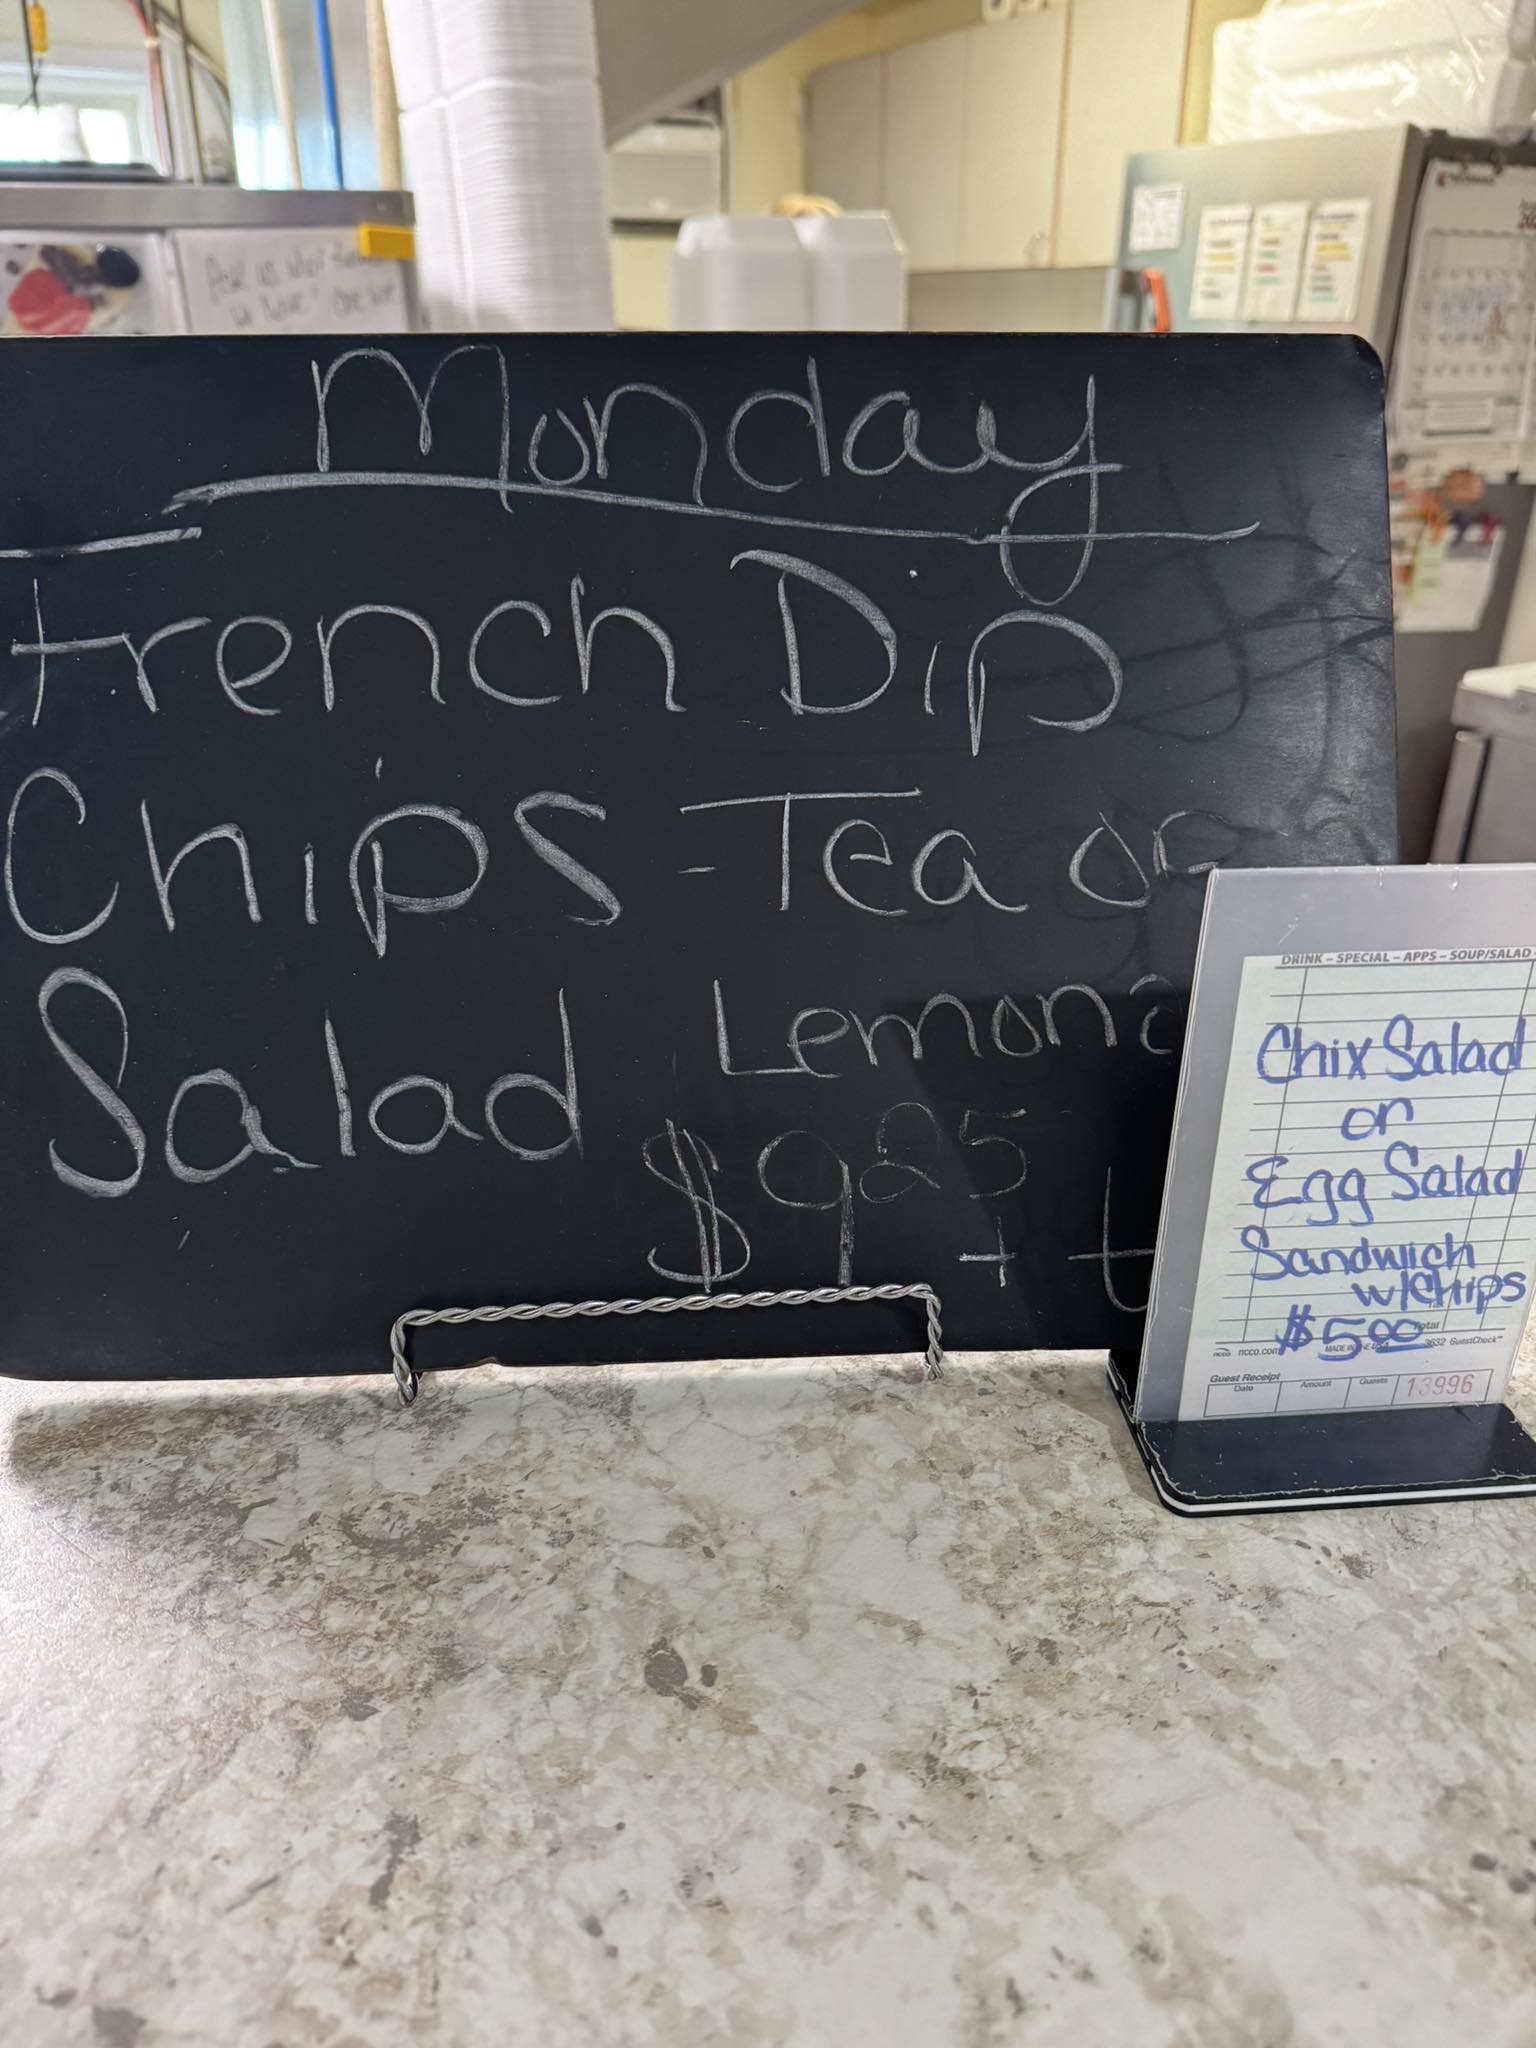 Monday
French Dip
Chips - Tea or
Salad Lemona
$9.25
+ t
DRINK – SPECIAL – APPS – SOUP/SALAD
Chix Salad
or
Egg Salad
Sandwich
w/Chips
$5.00
Tax
Total
ncco ncco.com MADE IN THE USA 3632 GuestCheck™
Guest Receipt
Date Amount Guests 13996